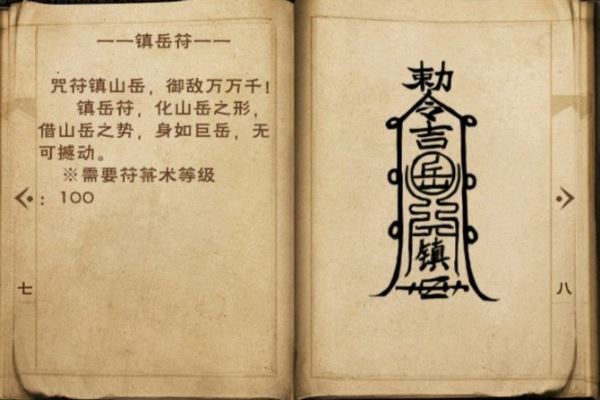 ——镇岳符——
咒符镇山岳，御敌万万千！
镇岳符，化山岳之形，
借山岳之势，身如巨岳，无
可撼动。
※需要符箓术等级
：100
七
勅
令
吉
岳
镇
八